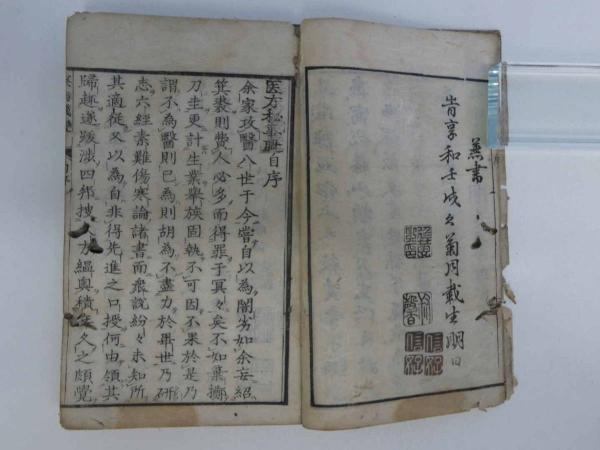 書
旹享和壬戌之菊月哉生明日
医方秘自序
余家攻醫八世于今嘗自以為闇劣如余妄紹
箕裘則費人必多而得罪于冥々矣不知棄擲
刀圭更計生業舉族固執不可因不果於是乃
謂不為醫則已為則胡為不盡力於畢世乃研
志六經素難傷寒論諸書而衆說紛々未知所
其適從又以為自非得先進之口授何由領其
歸趣遂跋渉四邦捜方縕奧積年久之頗覺